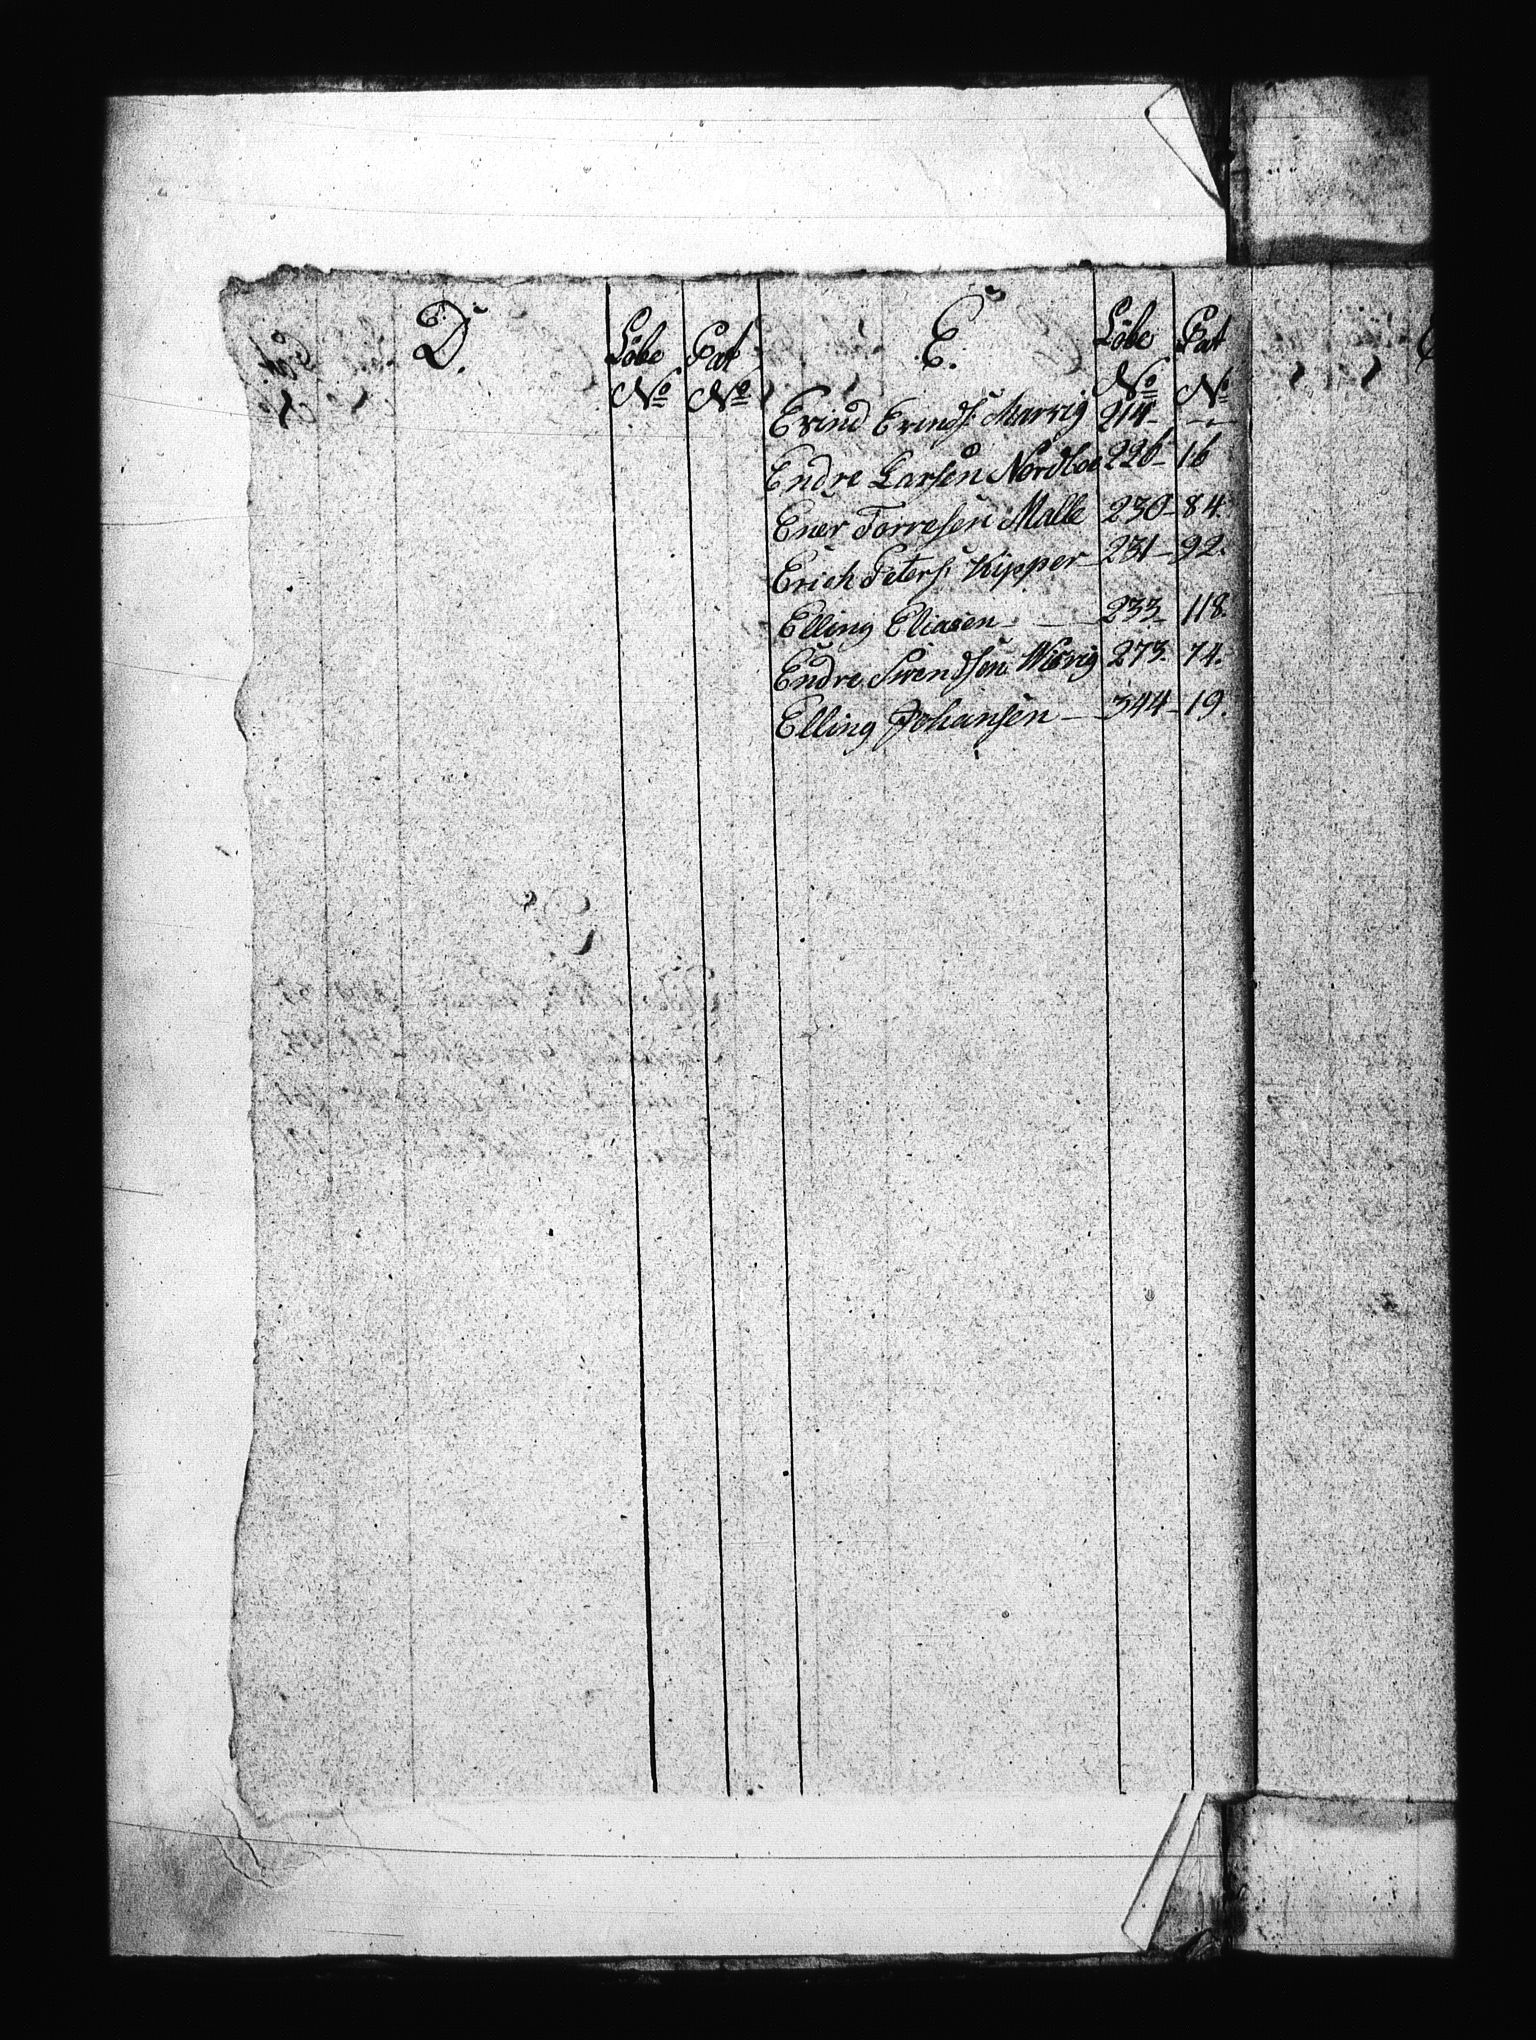 D.
Löbe Pat
No No
E.
Löbe Pat
No No
Evind Evinds: Marvig 214 - —
Endre Larsen Nordboe 226 - 16
Ener Torresen Malle 230 - 84.
Erich Peters: Kipper - 231 - 92.
Elling Eliasen - — 233 - 118.
Endre Svendsen Wisvig 273. 74.
Elling Johansen — 344 - 19.